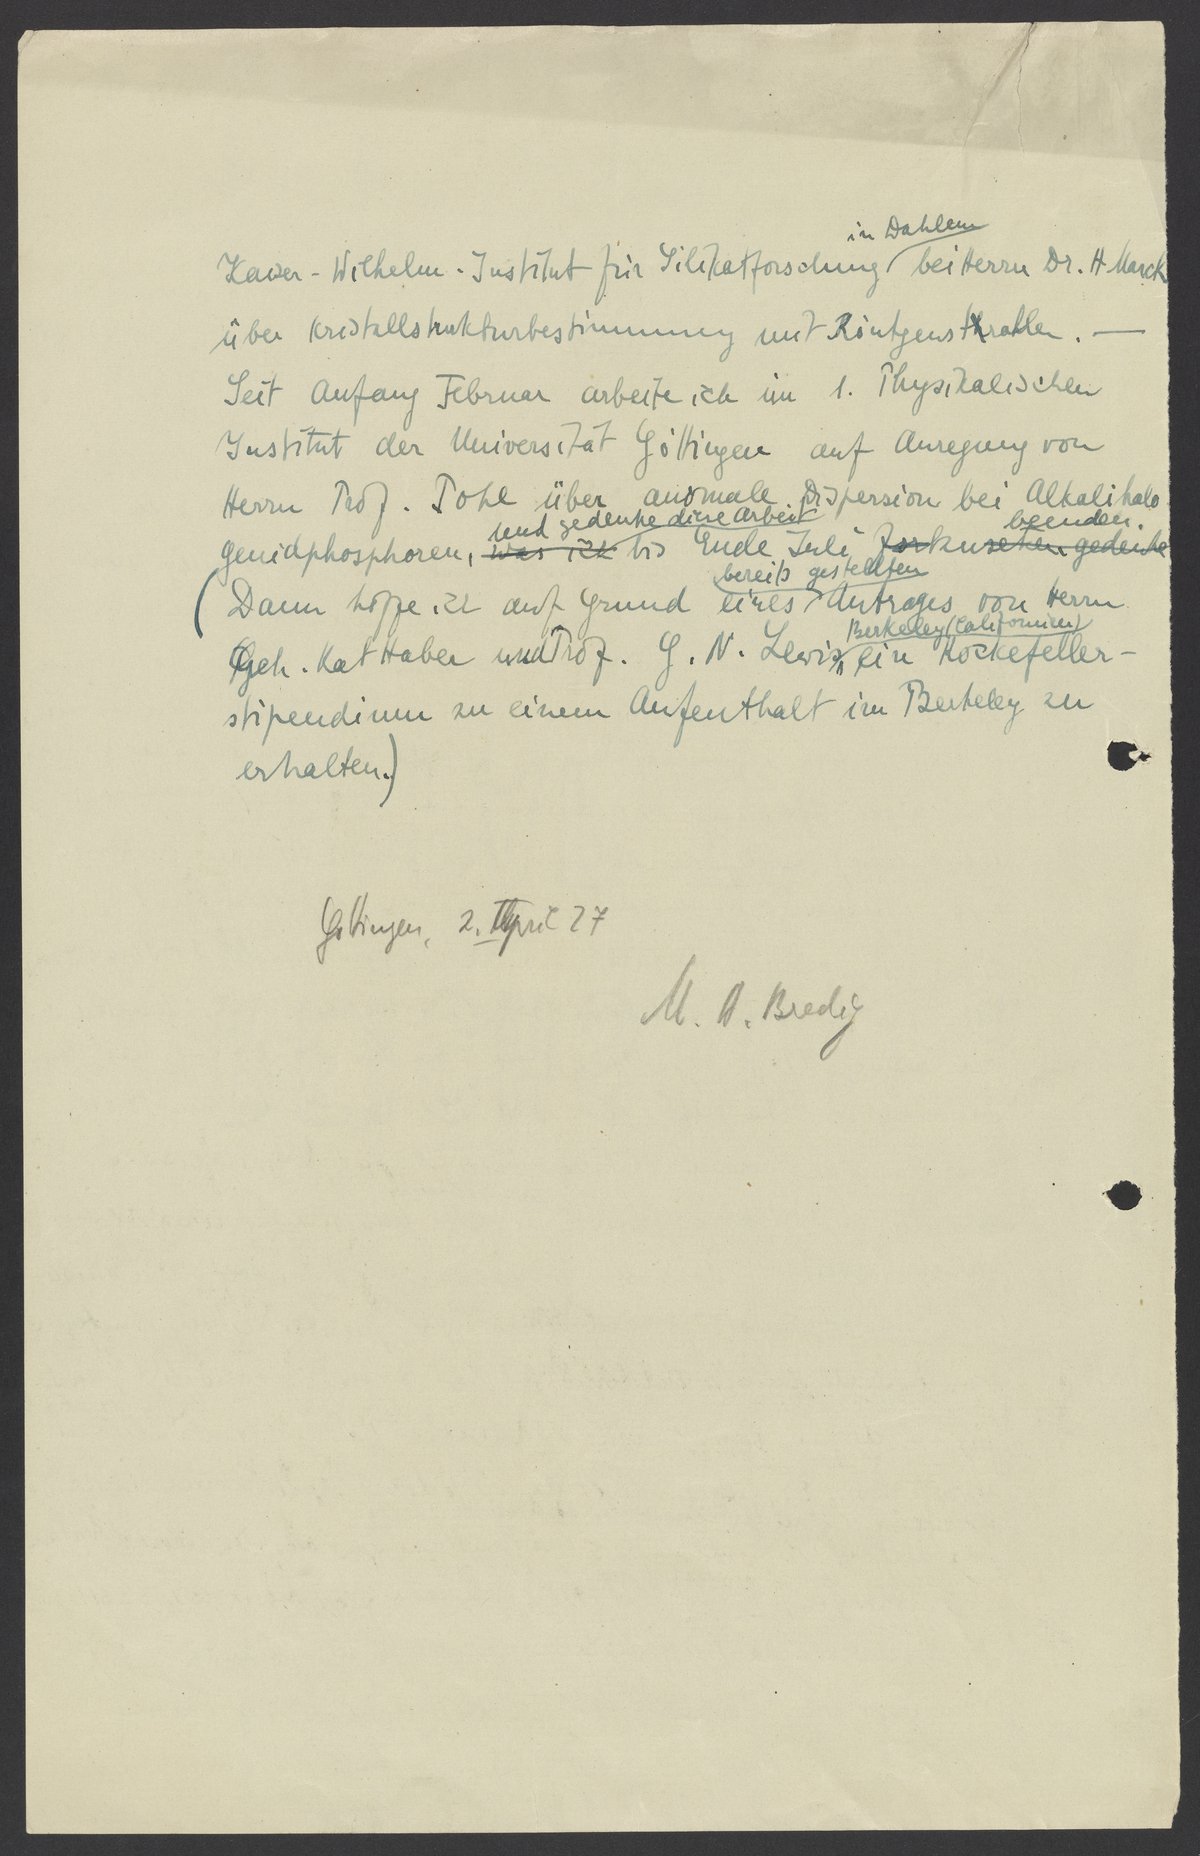 in Dahlem
Kaiser-Wilhelm-Institut für Silikatforschung bei Herrn Dr. H Marck
über Kristallstrukturbestimmung mit Röntgenstrahlen. —
Seit Anfang Februar arbeite ich im 1. Physikalischen
Institut der Universität Göttingen auf Anregung von
Herrn Prof. Pohl über anomale Dispersion bei Alkalihalo
und gedenke diese Arbeit beenden.
genidphosphoren, was ich bis Ende Juli gedenke
bereits gestellten
(Dann hoffe ich auf Grund eines Antrages von Herrn
Berkeley (Californien)
Geh. Rat Haber und Prof. G. N. Lewis, ein Rockefeller-
stipendium zu einem Aufenthalt in Berkeley zu
erhalten.)
Göttingen, 2. April 27
M. A. Bredig